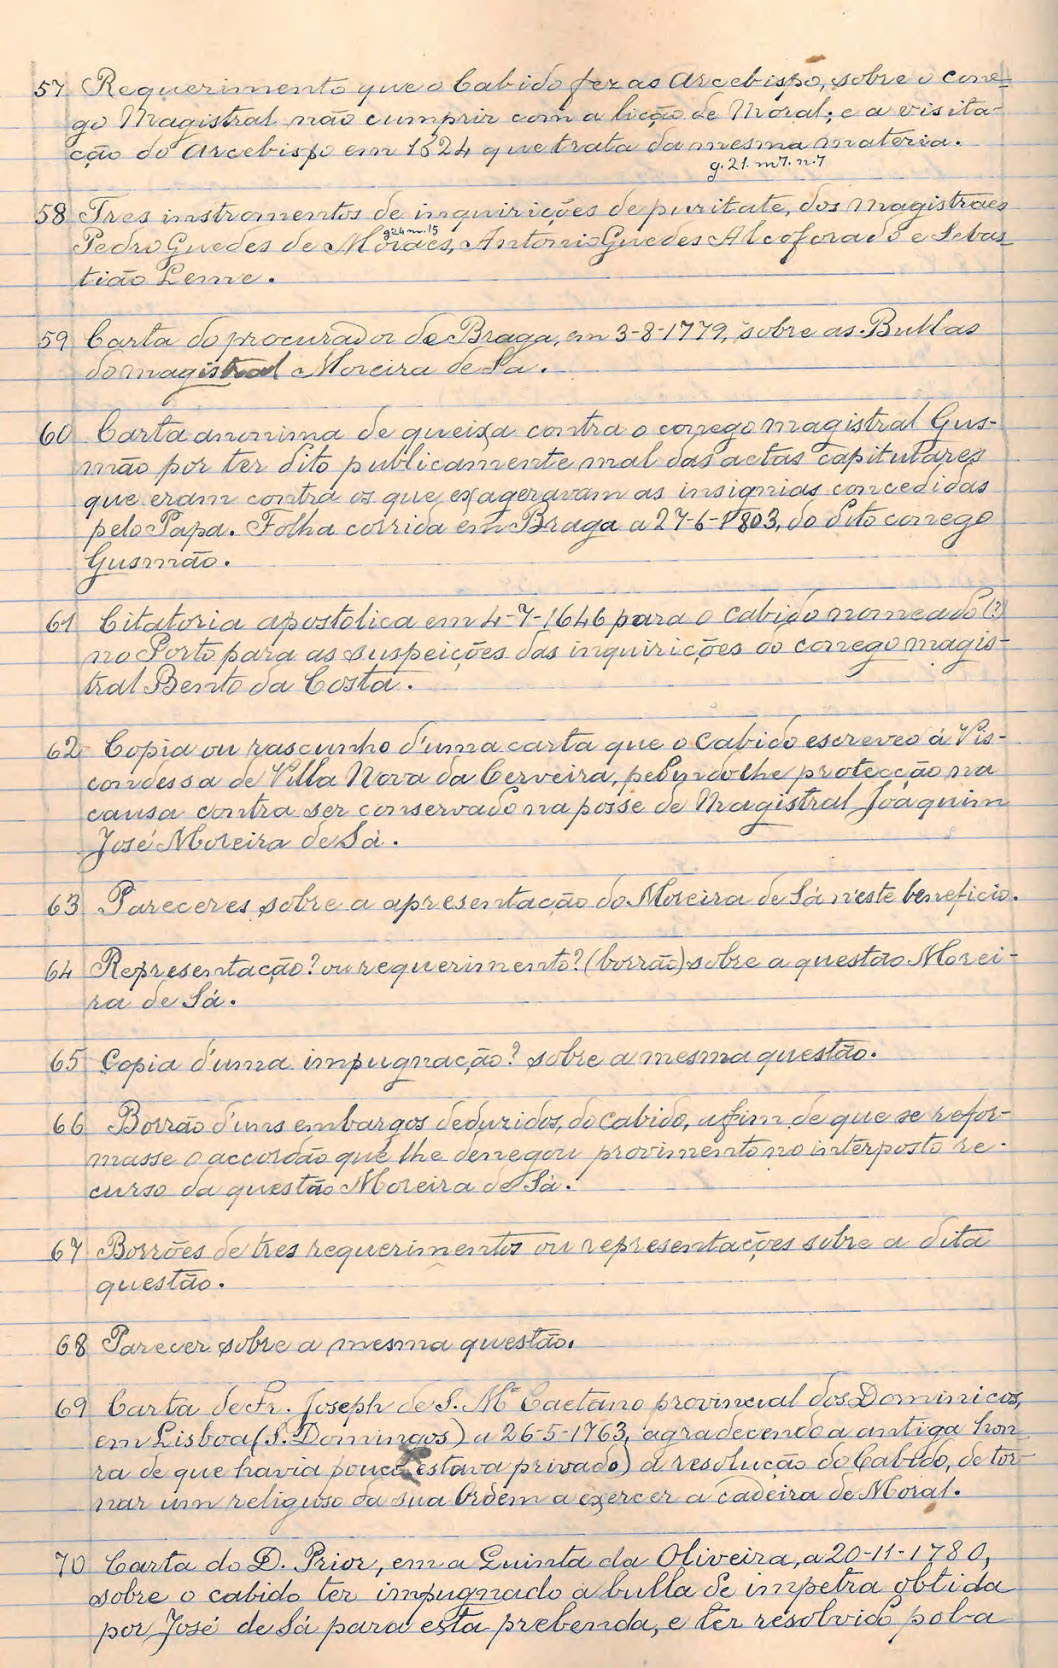 57 Requerimento que o Cabido fez ao Arcebispo, sobre o cone-
go Magistral não cumprir com a lição de Moral; e a visita-
ção do Arcebispo em 1624 que trata da mesma materia.
g. 21. m 7. n. 7
58 Tres instromentos de inquirições de puritate, dos magistraes
g 24 m. 15
Pedro Guedes de Moraes, Antonio Guedes Alcoforado e Sebas-
tião Leme.
59 Carta do procurador de Braga, em 3-8-1779, sobre as Bullas
do magistral Moreira de Sá.
60 Carta anonima de queixa contra o conego magistral Gus-
mão por ter dito publicamente mal das actas capitulares
que eram contra os que exageravam as insignias concedidas
pelo Papa. Folha corrida em Braga a 27-6-1803, do dito conego
Gusmão.
61 Citatoria apostolica em 4-7-1646 para o Cabido nomeado (?)
no Porto para as suspeições das inquirições do conego magis-
tral Bento da Costa.
62 Copia ou rascunho d'uma carta que o Cabido escreveo á Vis-
condessa de Villa Nova da Cerveira, pedindolhe protecção na
causa contra ser conservado na posse de Magistral Joaquim
José Moreira de Sá.
63 Pareceres sobre a apresentação do Moreira de Sá n'este beneficio.
64 Representação? ou requerimento? (borrão) sobre a questão Morei-
ra de Sá.
65 Copia d'uma impugnação? sobre a mesma questão.
66 Borrão d'uns embargos deduzidos, do Cabido, afim de que se refor-
masse o accordão que lhe denegou provimento no interposto re-
curso da questão Moreira de Sá.
67 Borrões de tres requerimentos ou representações sobre a dita
questão.
68 Parecer sobre a mesma questão.
69 Carta de Fr. Joseph de S. Mª Caetano provincial dos Dominicos,
em Lisboa (S. Domingos) a 26-5-1763, agradecendo a antiga hon-
ra de que havia pouco estava privado) a resolução do Cabido, de tor-
nar um religioso da sua Ordem a exercer a cadeira de Moral.
70 Carta do D. Prior, em a Quinta da Oliveira, a 20-11-1780,
sobre o cabido ter impugnado a bulla de impetra obtida
por José de Sá para esta prebenda, e ter resolvido pol-a